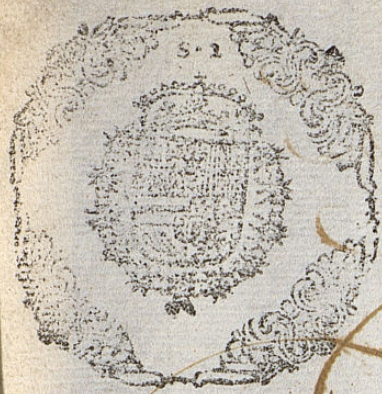 S·2